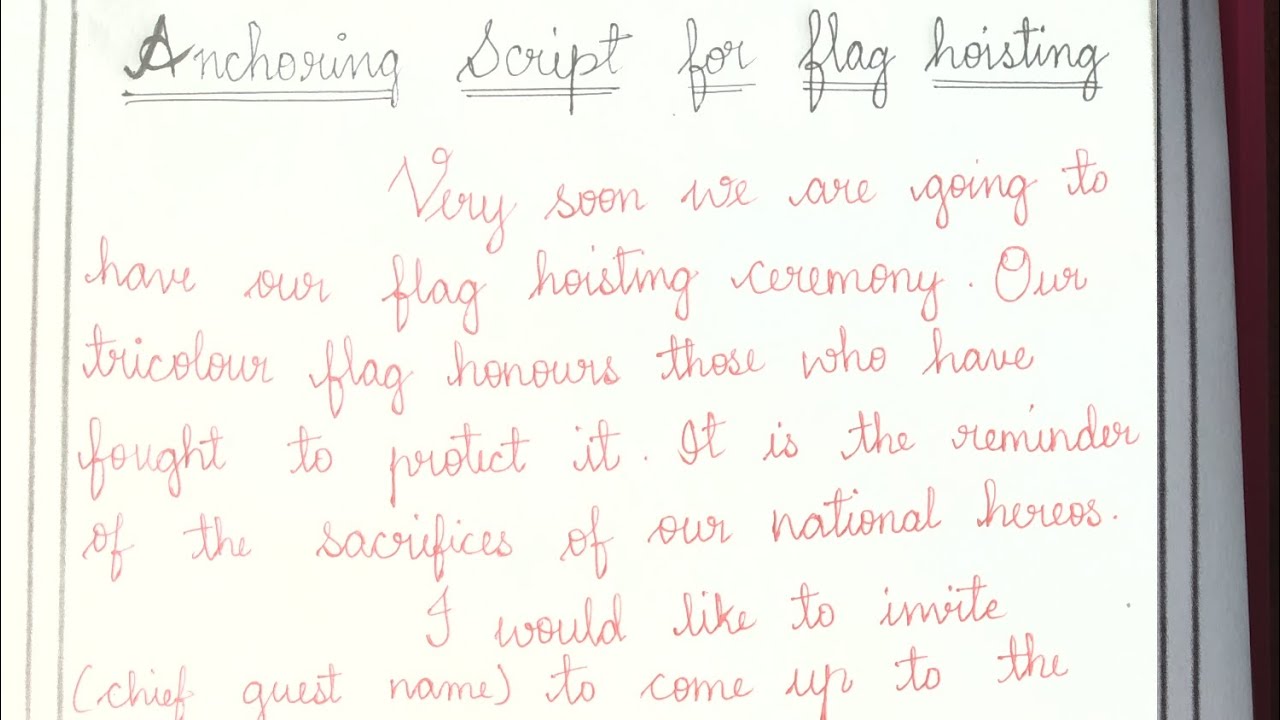 Anchoring Script for flag hoisting
Very soon we are going to
have our flag hoisting ceremony. Our
tricolour flag honours those who have
fought to protect it. It is the reminder
of the sacrifices of our national hereos.
I would like to invite
(chief guest name) to come up to the